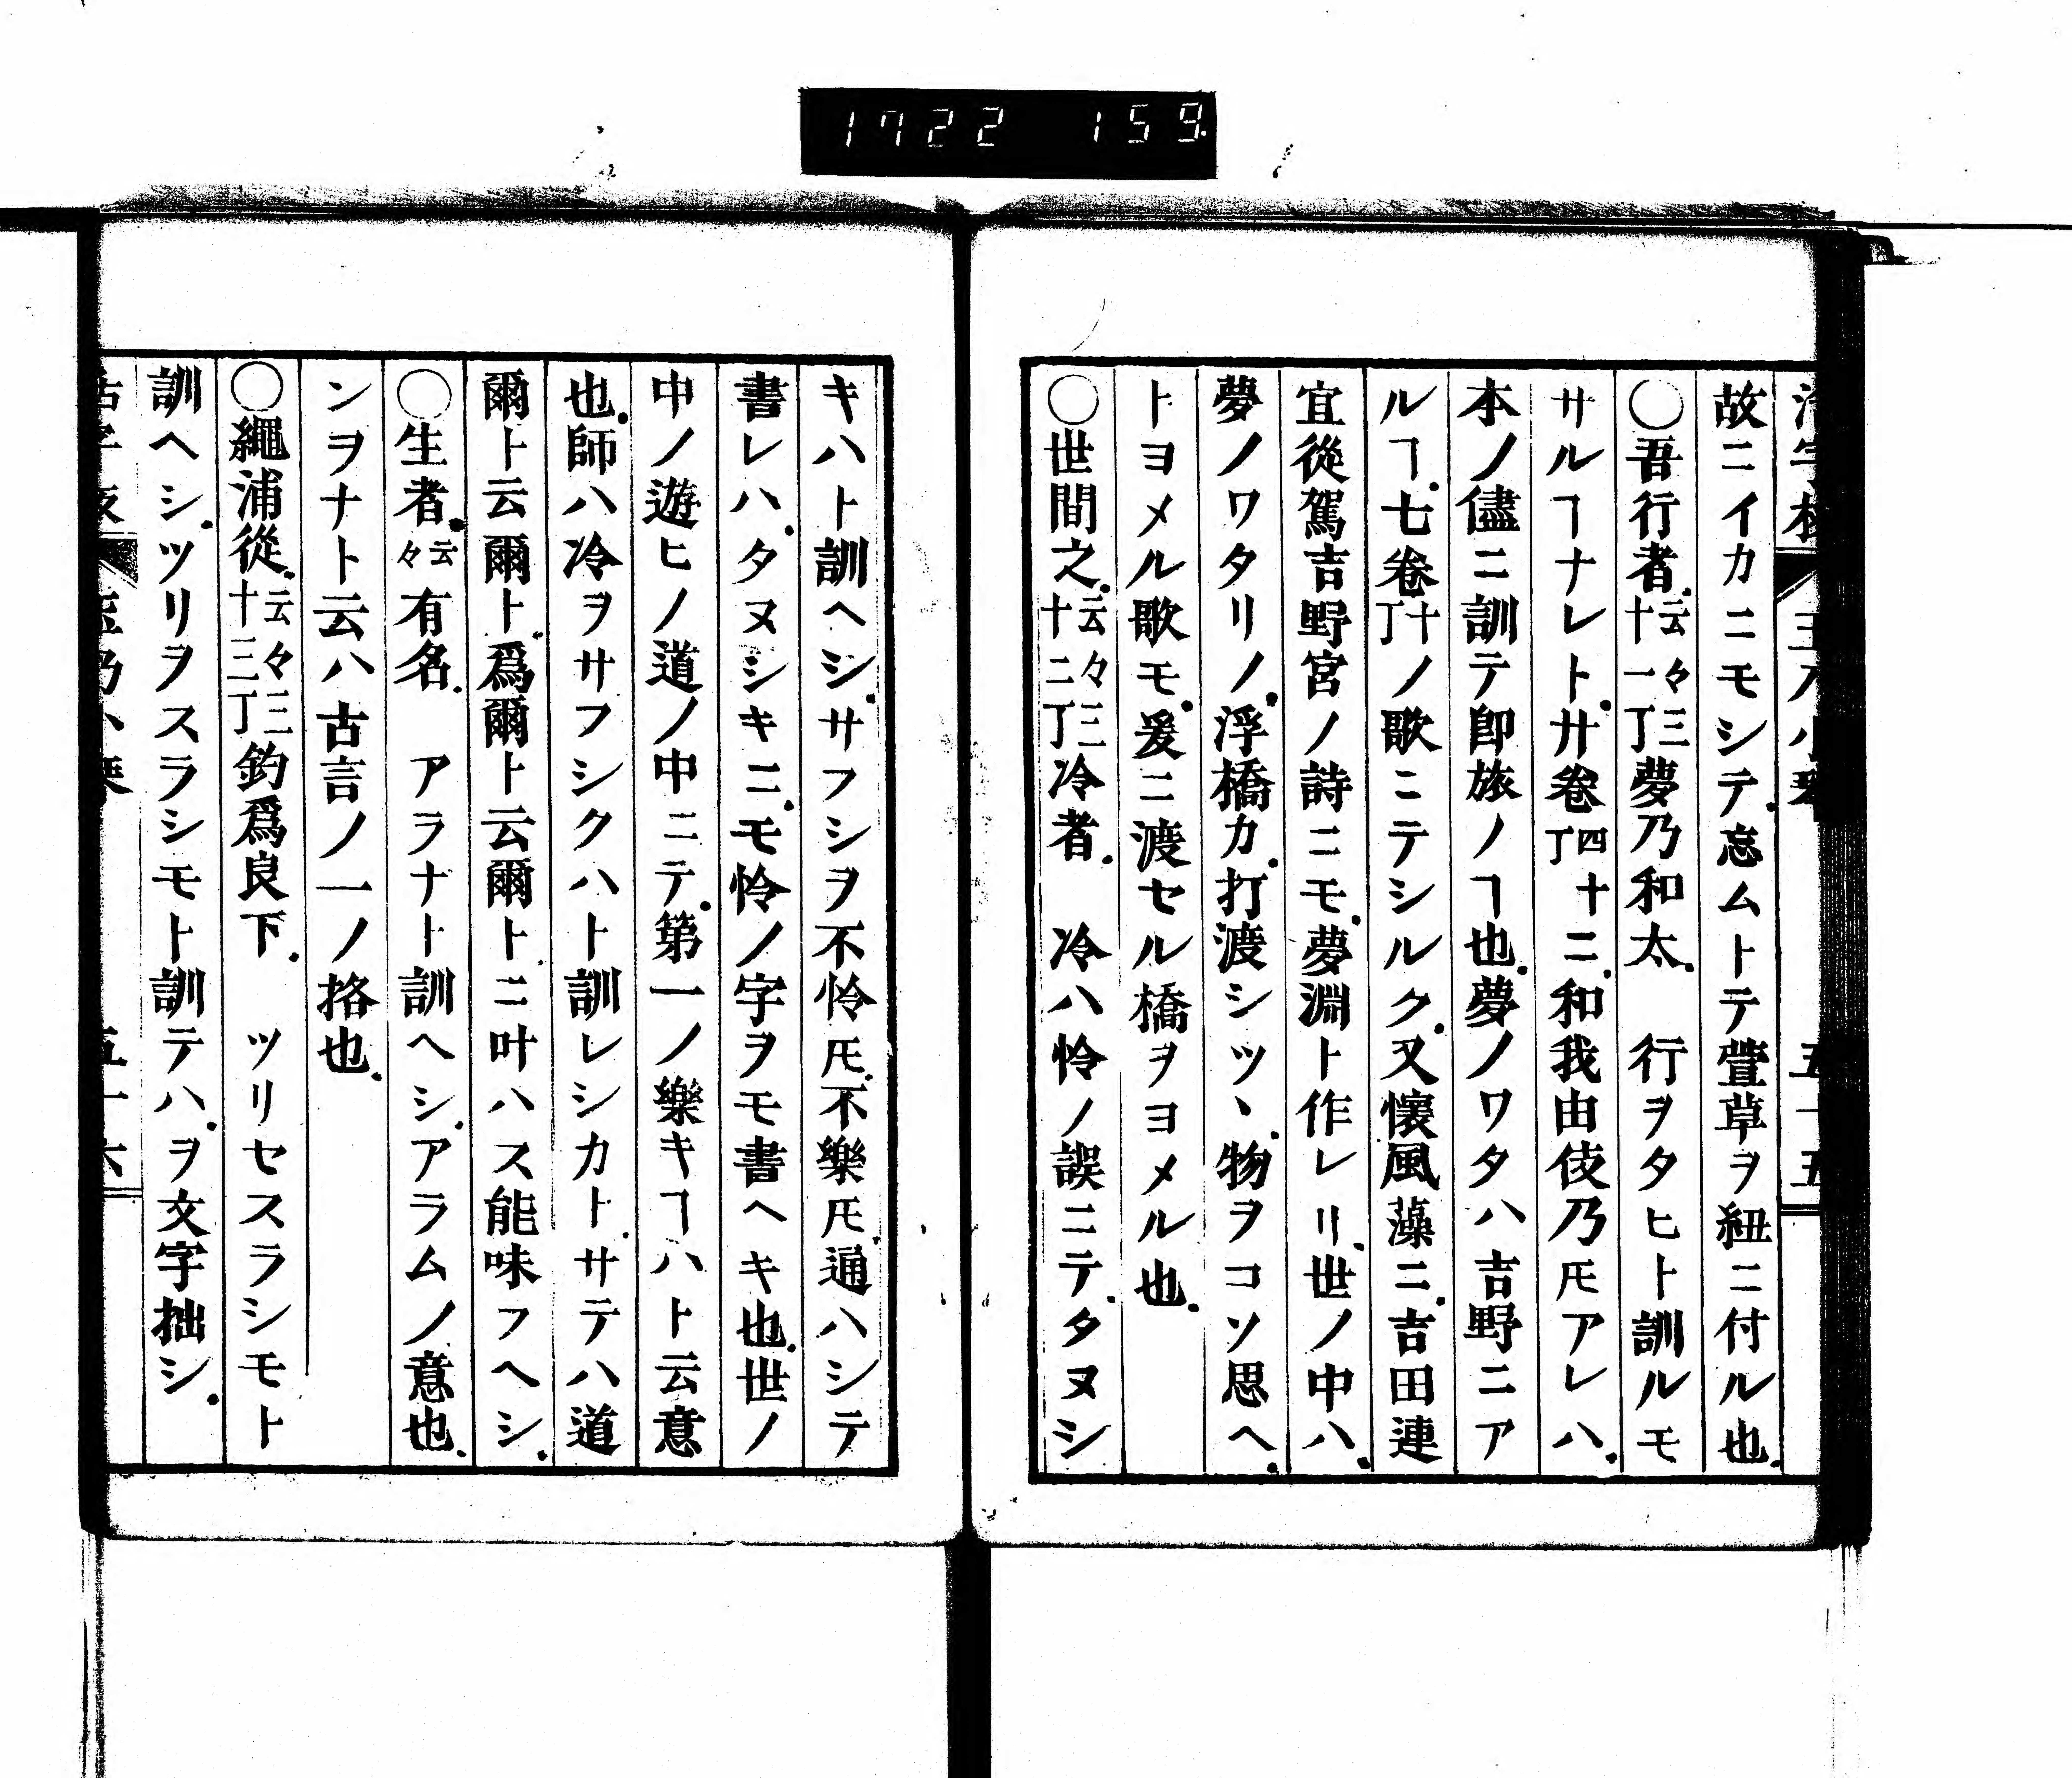 1722 159
故ニイカニモシテ忘ムトテ萱草ヲ紐ニ付ル也
〇吾行者云々三十一丁夢乃和太 行ヲタヒト訓ルモ
サルヿナレト廾卷四丁十ニ和我由伎乃𪜈アレハ
本ノ儘ニ訓テ卽旅ノヿ也夢ノワタハ吉野ニア
ルヿ七卷十丁ノ歌ニテシルク又懷風藻ニ吉田連
宜從駕吉野宮ノ詩ニモ夢淵ト作レリ世ノ中ハ
夢ノワタリノ浮橋カ打渡シツヽ物ヲコソ思ヘ
トヨメル歌モ爰ニ渡セル橋ヲヨメル也
〇世間之云々三十二丁冷者 冷ハ怜ノ誤ニテタヌシ
キハト訓ヘシサフシヲ不怜𪜈不樂𪜈通ハシテ
書レハタヌシキニモ怜ノ字ヲモ書ヘキ也世ノ
中ノ遊ヒノ道ノ中ニテ第一ノ樂キヿハト云意
也師ハ冷ヲサフシクハト訓レシカトサテハ道
爾ト云爾ト爲爾ト云爾トニ叶ハス能味フヘシ
〇生者云々有名 アラナト訓ヘシアラムノ意也
ンヲナト云ハ古言ノ一ノ挌也
〇繩浦從云々三十三丁釣爲良下 ツリセスラシモト
訓ヘシツリヲスラシモト訓テハヲ文字拙シ